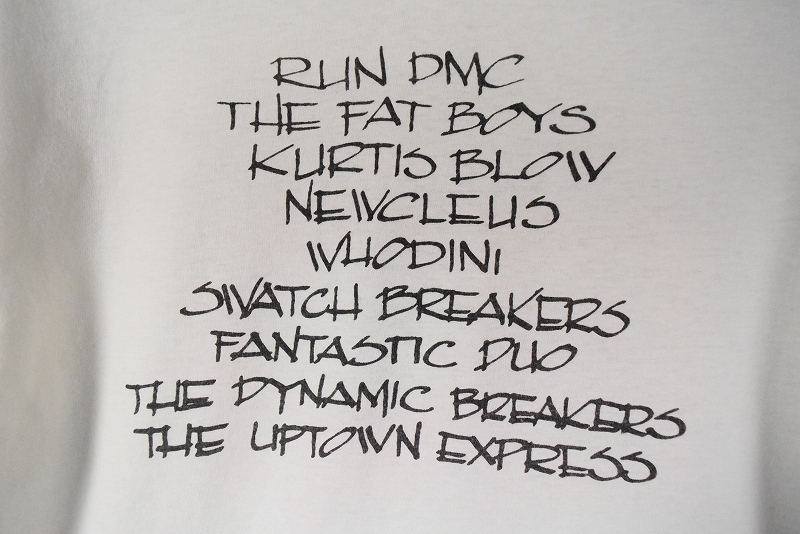 RUN DMC
THE FAT BOYS
KURTIS BLOW
NEWCLEUS
WHODINI
SWATCH BREAKERS
FANTASTIC DUO
THE DYNAMIC BREAKERS
THE UPTOWN EXPRESS